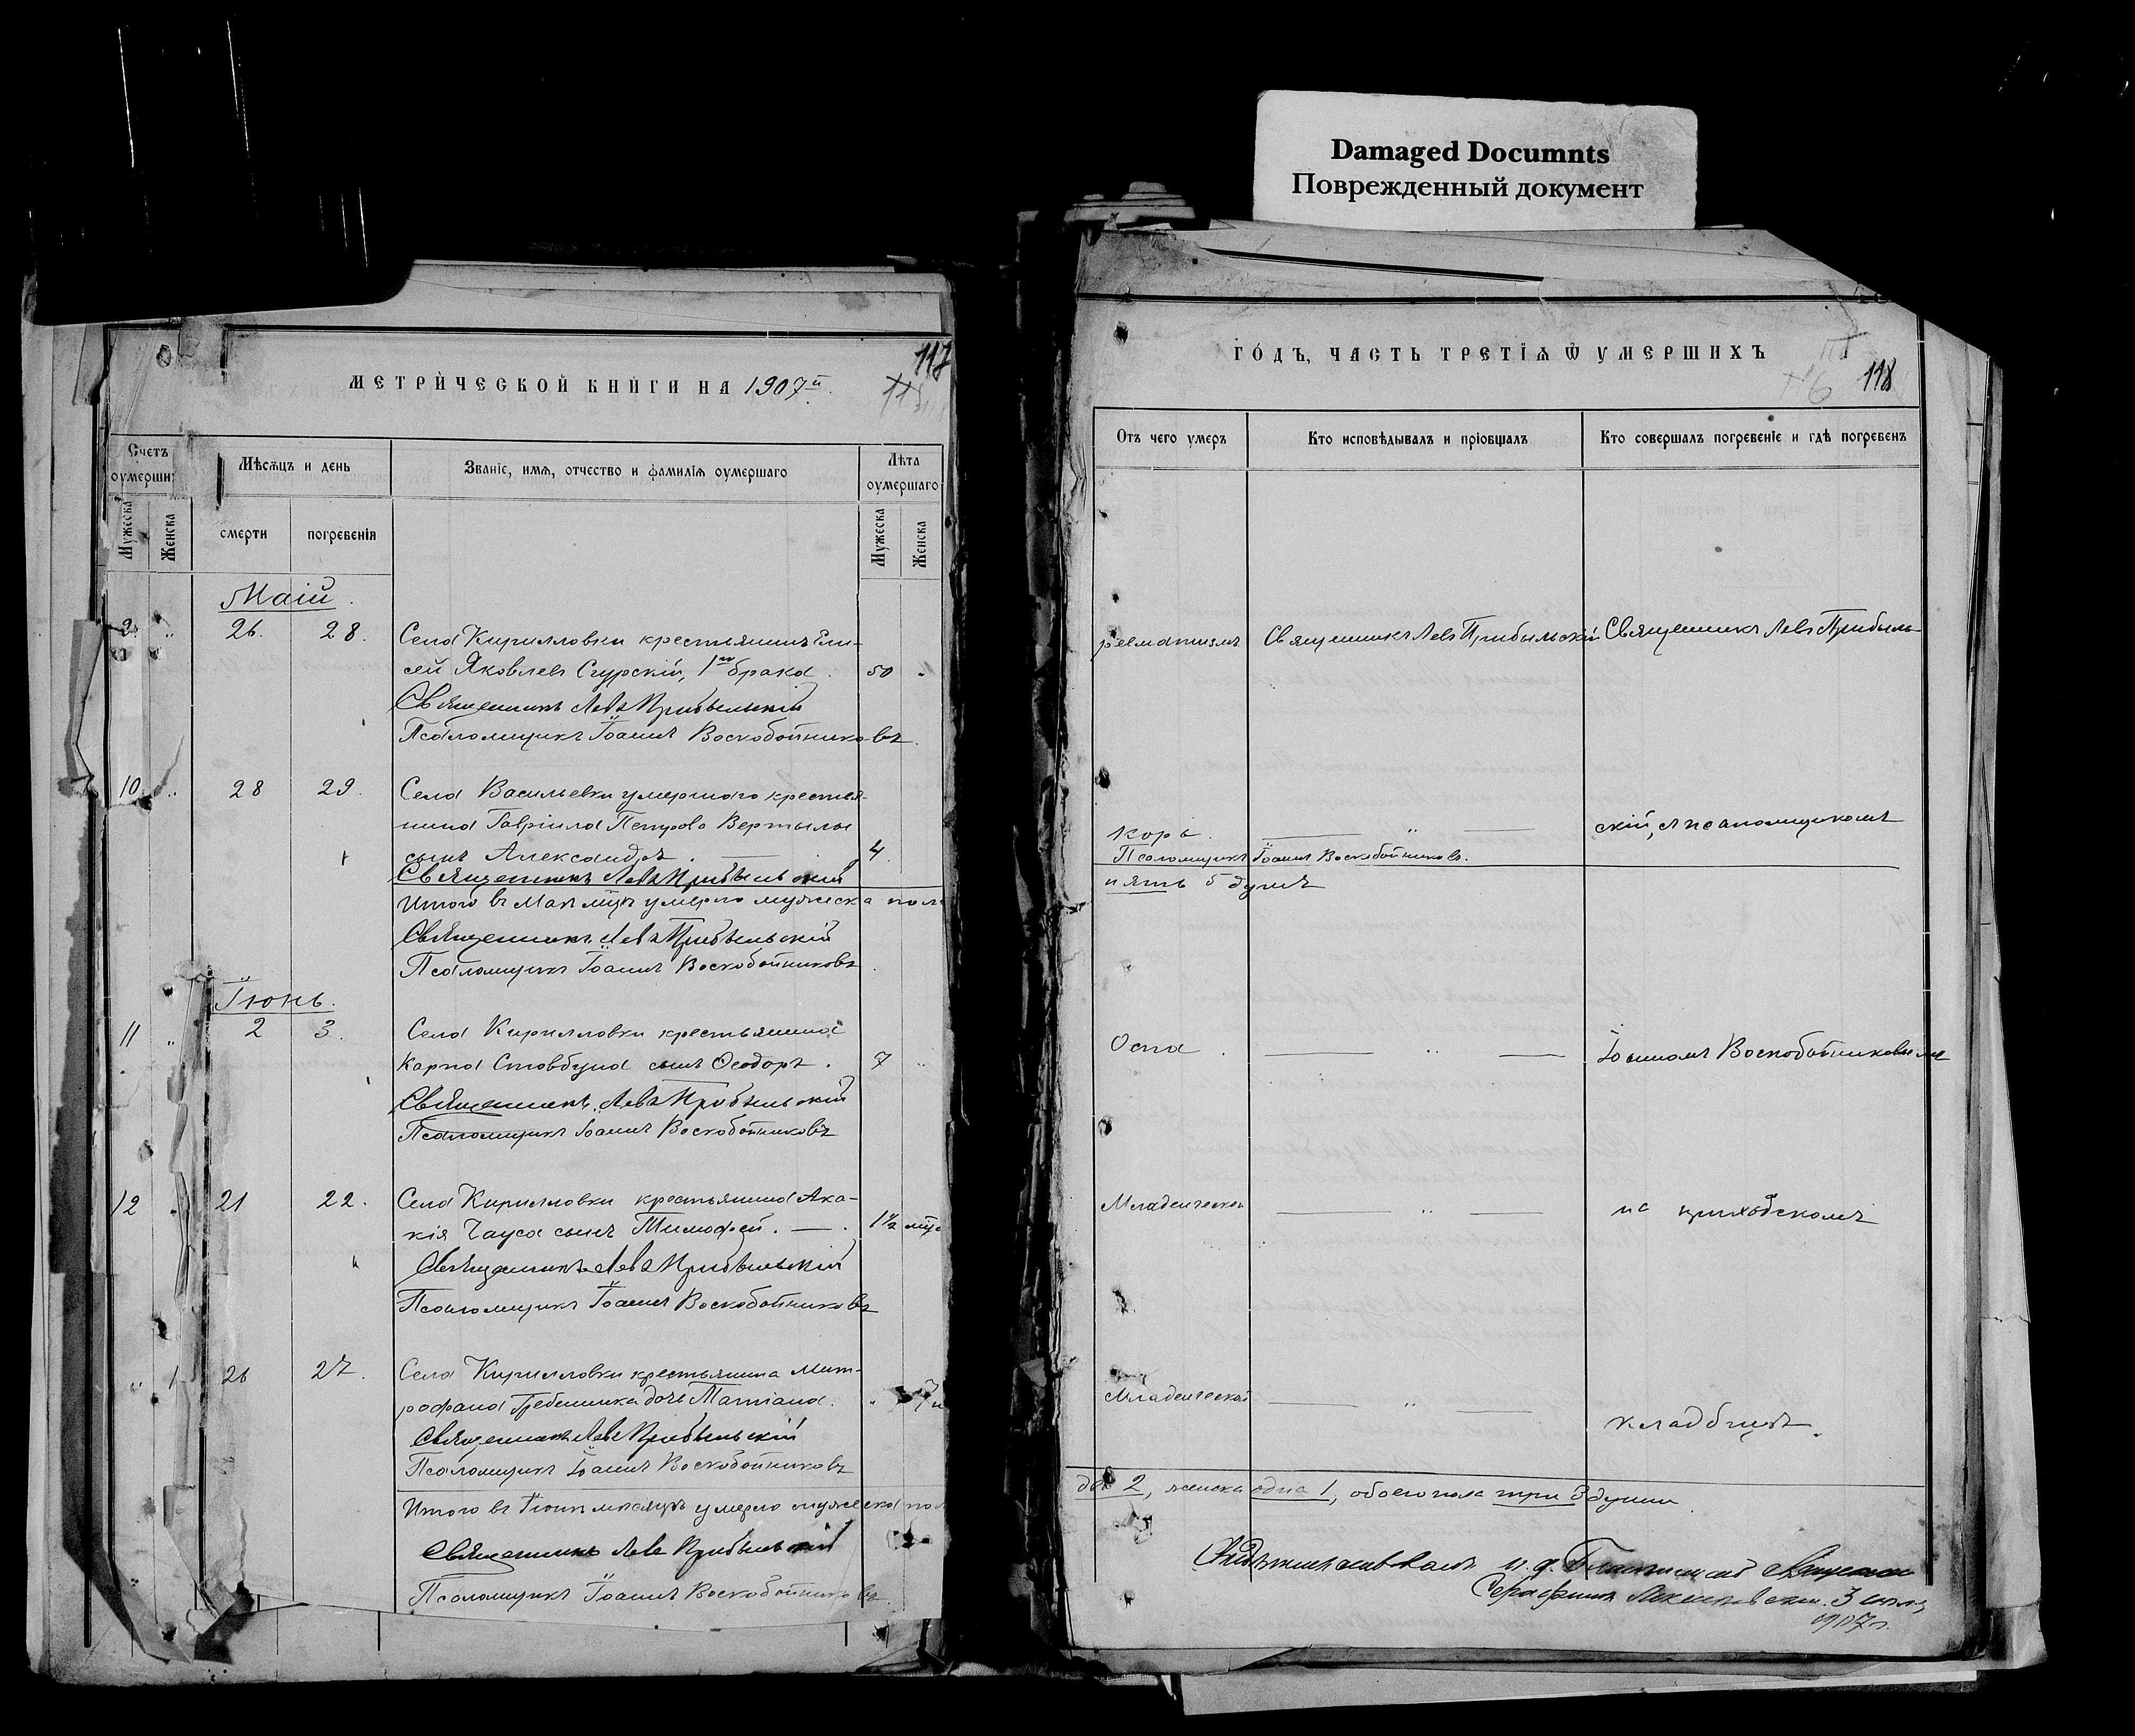 Damaged Documnts
Поврежденный документ
117
МЕТРИЧЕСКОЙ КНИГИ НА 1907й.
Счетъ оумерши
Мѣсяцъ и день
Званіе, имя, отчество и фамилія оумершаго
Лѣта оумершаго
Мужеска
Женска
смерти
погребенія
Мужеска
Женска
Маій.
9. „ 26. 28. Села Кирилловки крестьянинъ Ели-
сей Яковлевъ Сгурскій, 1го брака. 50 „
Священникъ Левъ Прибыльскій
Псаломщикъ Іоаннъ Воскобойниковъ.
10. „ 28 29. Села Васильевки умершаго крестья-
нина Гавріила Петрова Вертылы
сынъ Александръ. 4.
Священникъ Левъ Прибыльскій
Итого въ Маѣ мцѣ умерло мужеска пола
Священникъ Левъ Прибыльскій
Псаломщикъ Іоаннъ Воскобойниковъ.
Іюнь.
11 „ 2 3. Села Кирилловки крестьянина
Карпа Стовбуна сынъ Ѳеодоръ. 7 „
Священникъ Левъ Прибыльскій
Псаломщикъ Іоаннъ Воскобойниковъ
12 „ 21 22. Села Кирилловки крестьянина Ака-
кія Чауса сынъ Тимофей. 1½
Священникъ Левъ Прибыльскій
Псаломщикъ Іоаннъ Воскобойниковъ
„ 1 26 27. Села Кирилловки крестьянина Мит-
рофана Гребенника дочь Татіана. „ 7
Священникъ Левъ Прибыльскій
Псаломщикъ Іоаннъ Воскобойниковъ
Итого въ Іюнѣ мѣсяцѣ умерло мужеска пола
Священникъ Левъ Прибыльскій
Псаломщикъ Іоаннъ Воскобойниковъ.
ГОДЪ, ЧАСТЬ ТРЕТІЯ Ѿ УМЕРШИХЪ
116 118
Отъ чего умеръ
Кто исповѣдывалъ и пріобщалъ
Кто совершалъ погребеніе и гдѣ погребенъ
ревматизмъ Священникъ Левъ Прибыльскій Священникъ Левъ Прибыль-
корь. „ скій, съ псаломщикомъ
Псаломщикъ Іоаннъ Воскобойниковъ.
пять 5 душъ
Оспа. „ Іоанномъ Воскобойниковымъ
Младенческой „ на приходскомъ
Младенческой „ кладбищѣ.
два 2, женска одна 1, обоего пола три 3 души.
и. д.
Серафимъ 3
1907 г.